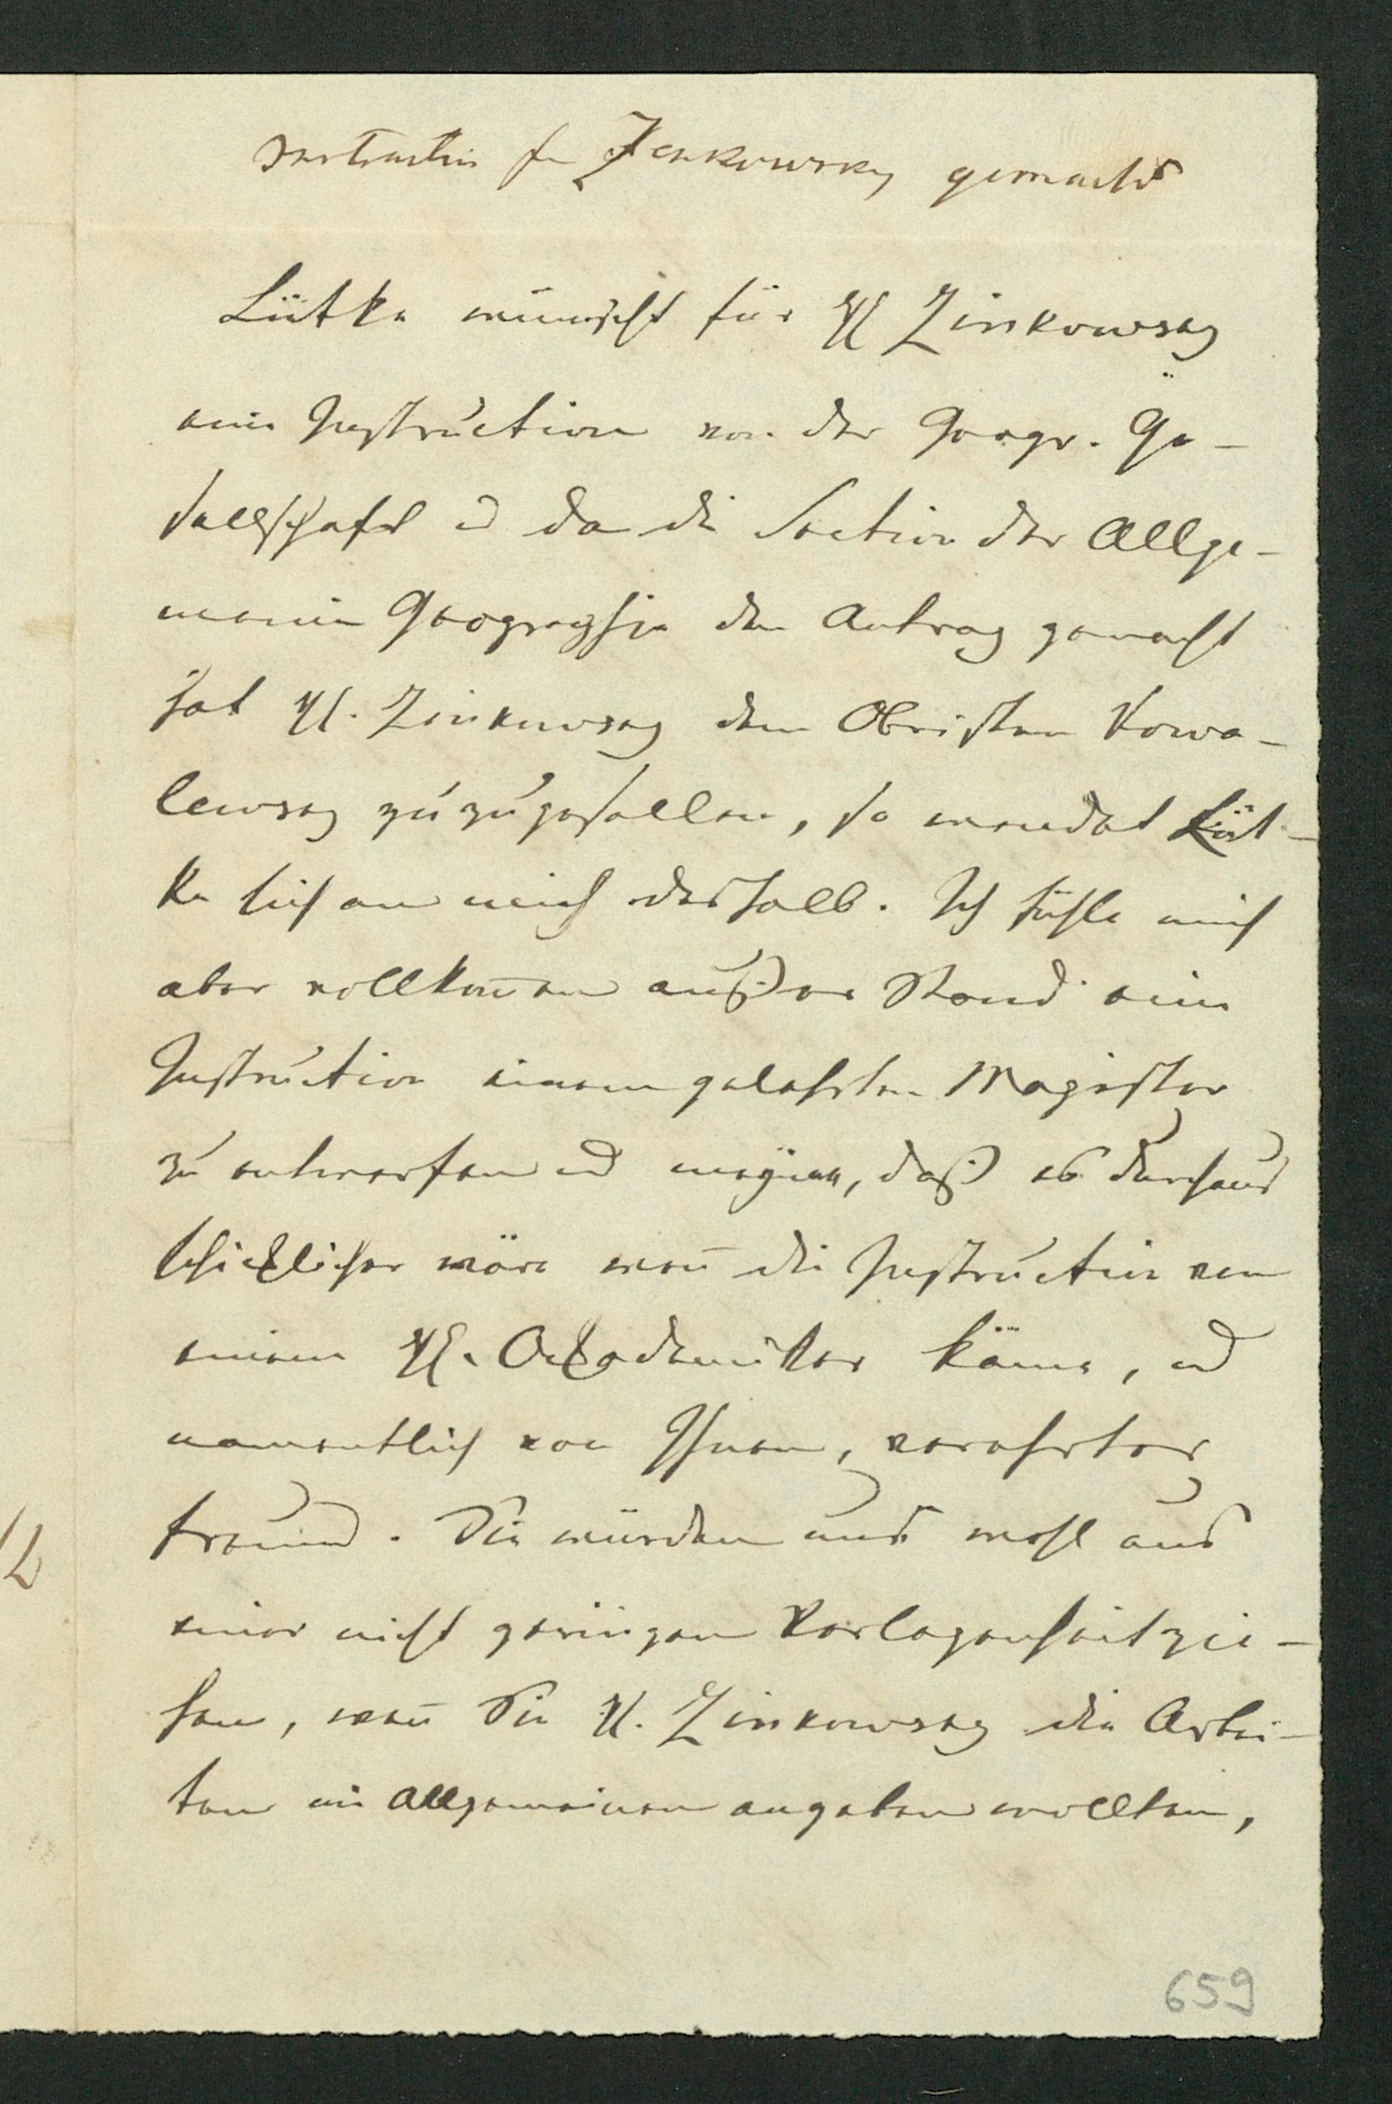 Instruction für Zenkowsky gemacht
Lütke wünscht für H Zinkowsky
eine Instruction von der Geogr. Ge-
sellschaft u da die Section der Allge-
meinen Geographie den Antrag gemacht
hat H. Zinkowsky dem Obristen Kowa-
lewsky zuzugesellen, so wendet Lüt-
ke sich an mich deshalb. Ich fühle mich
aber vollkom̅en außer Stand eine
Instruction einem gelehrten Magister
zu entwerfen und meÿne, daß es durchaus
schicklicher wäre wen̅ die Instruction von
einem H. Academiker käme, und
namentlich von Ihnen, verehrter
Freund. Sie würden uns wohl aus
einer nicht geringen Verlegenheit zie-
hen, wen̅ Sie H. Zinkowsky die Arbei-
ten im Allgemeinen angeben wollten,
12
659